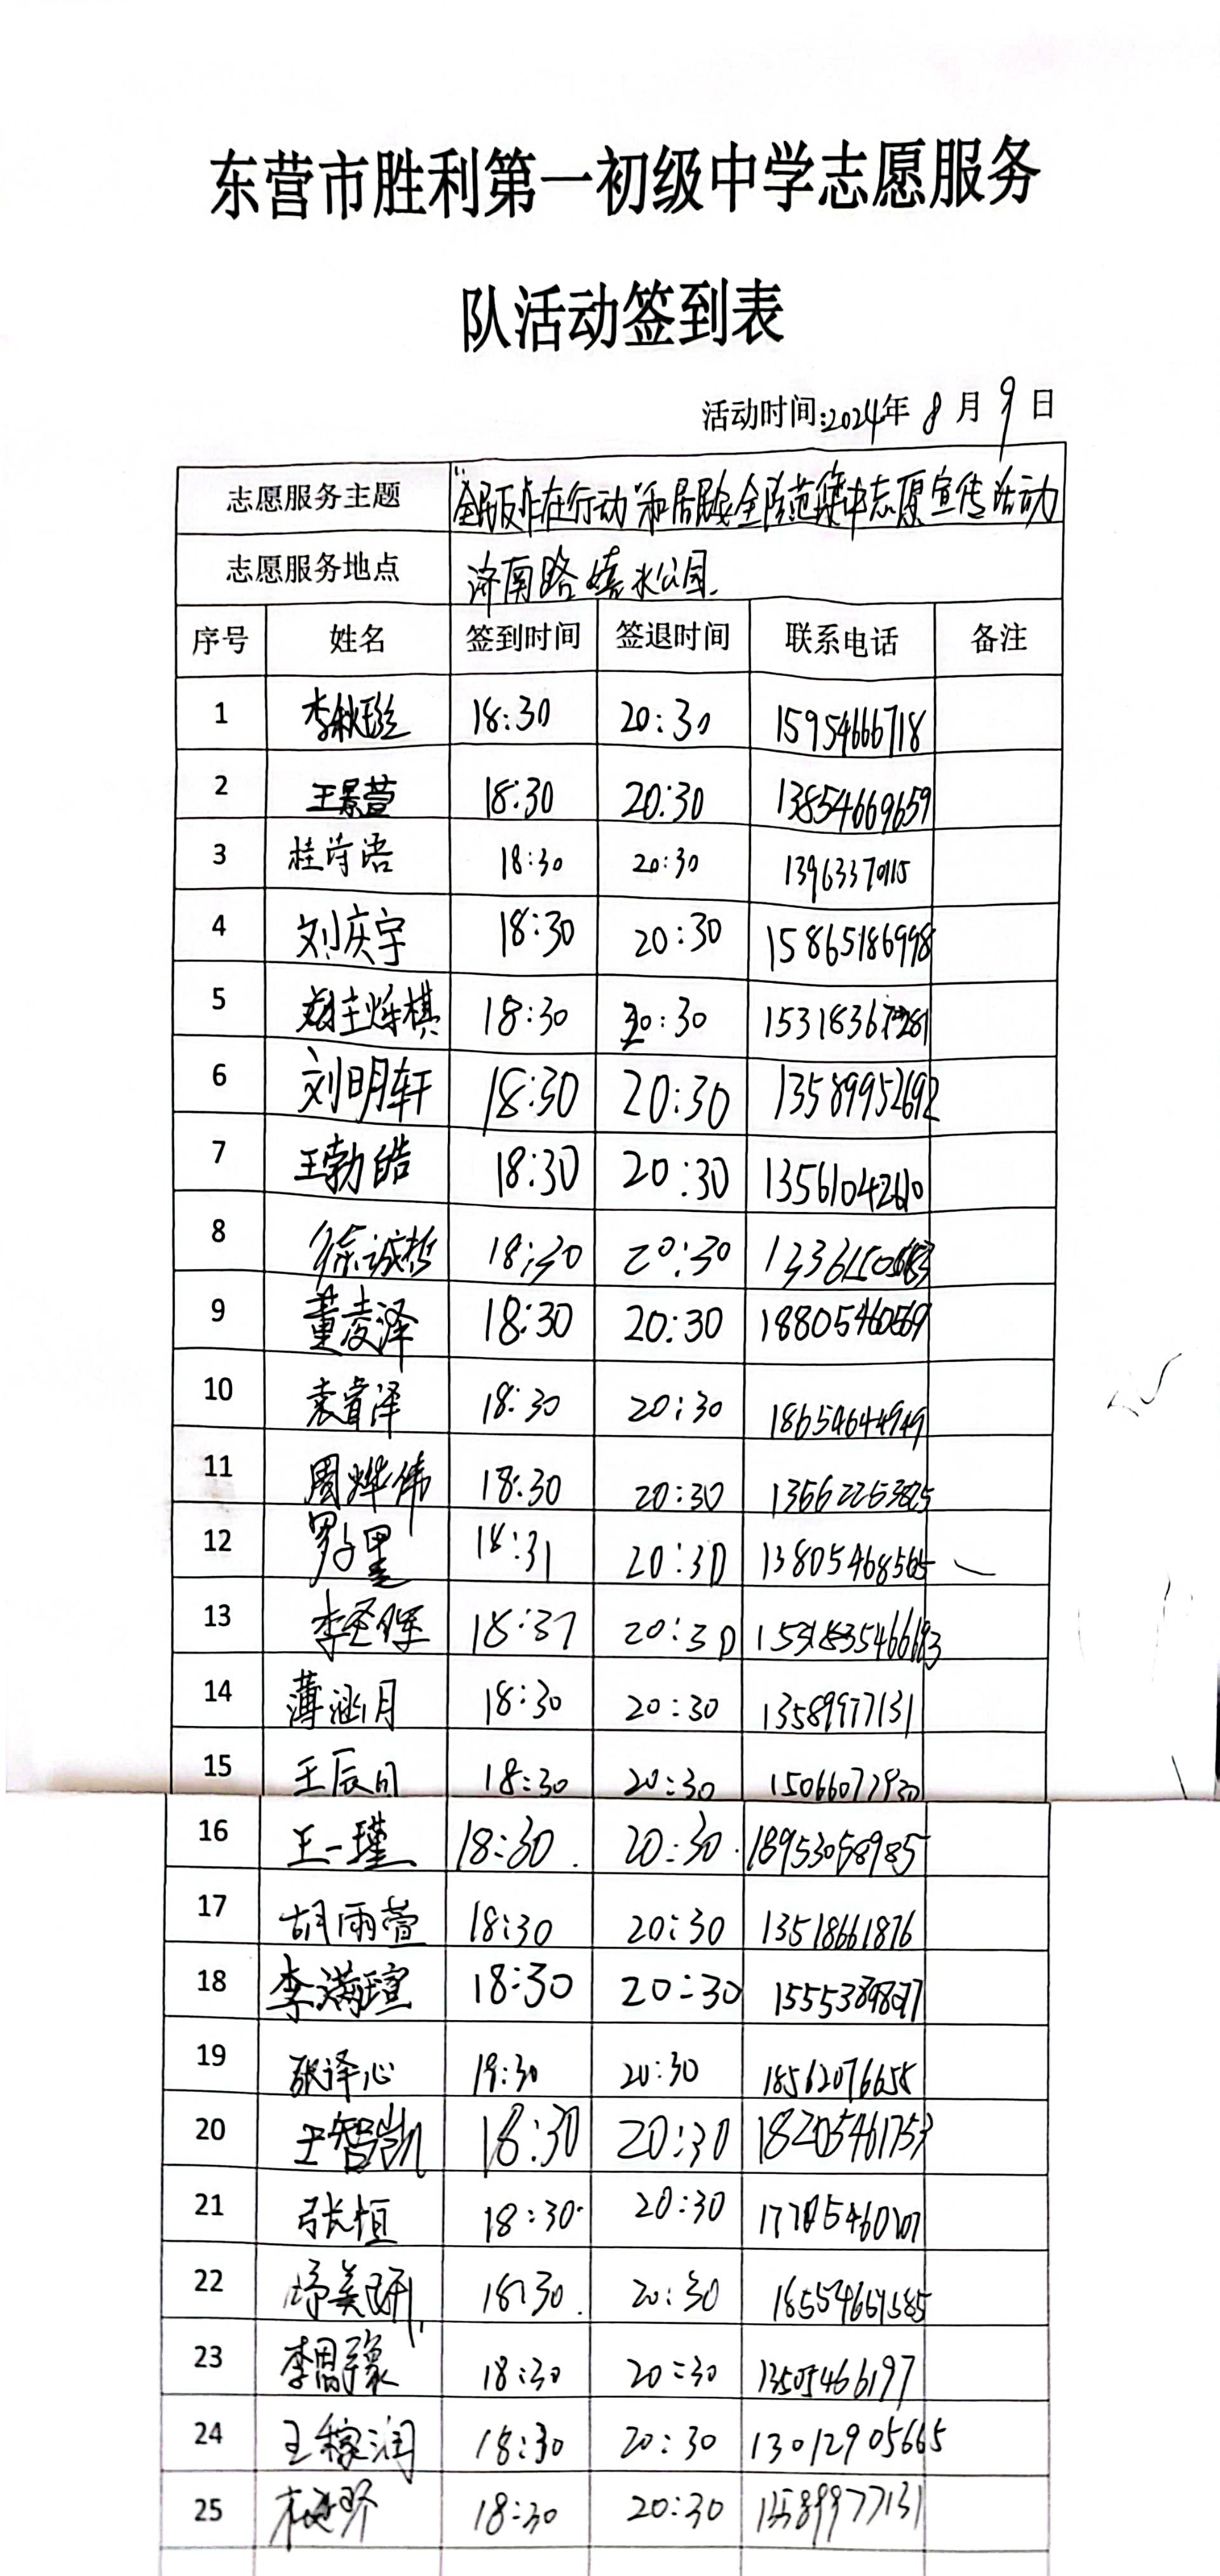 东营市胜利第一初级中学志愿服务
队活动签到表
活动时间:2024年 8 月 9 日
志愿服务主题 "全民反诈在行动"和居民安全防范集中志愿宣传活动
志愿服务地点 济南路嬉水公园.
序号 姓名 签到时间 签退时间 联系电话 备注
1 18:30 20:30 15954666718
2 王景萱 18:30 20:30 13854669659
3 桂诗语 18:30 20:30
4 刘庆宇 18:30 20:30 15865186998
5 18:30 20:30
6 刘明轩 18:30 20:30 13589952692
7 王勃皓 18:30 20:30 13561042610
8 徐诚哲 18:30 20:30
9 董凌泽 18:30 20:30 18805460569
10 袁睿泽 18:30 20:30 18654644949
11 周烨伟 18:30 20:30
12 18:31 20:30 13805468565
13 18:31 20:30
14 薄涵月 18:30 20:30 13589977131
15 王辰月 18:30 20:30 15066077930
16 王一瑾 18:30. 20:30. 18953058985
17 胡雨萱 18:30 20:30 13518661876
18 李满瑄 18:30 20:30
19 张译心 18:30 20:30 18562076658
20 王智凯 18:30 20:30 18205461753
21 张恒 18:30. 20:30
22 18:30. 20:30
23 18:30 20:30 13505466197
24 王稼润 18:30 20:30 13012905665
25 18:30 20:30 13589977131